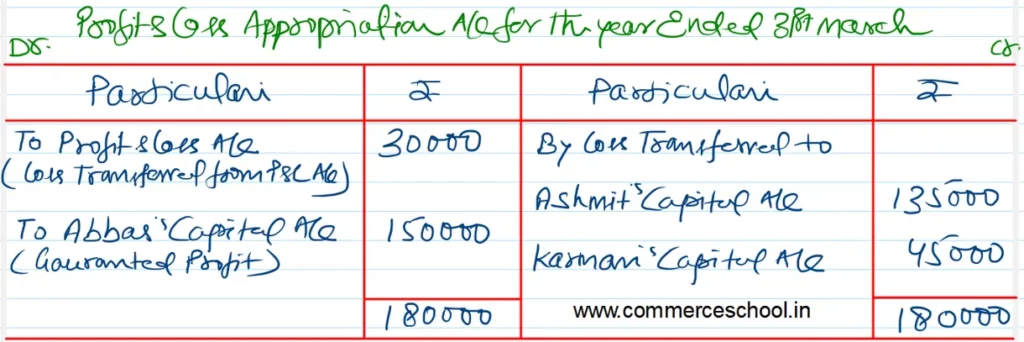 Profit & Loss Appropriation A/c for the year Ended 31st March
Dr. Cr.
Particulars ₹ Particulars ₹
To Profit & Loss A/c 30000 By Loss Transferred to
(Loss Transferred from P&L A/c)
Ashmit's Capital A/c 135000
To Abbas's Capital A/c 150000
(Gauranted Profit) Karman's Capital A/c 45000
180000 www.commerceschool.in 180000